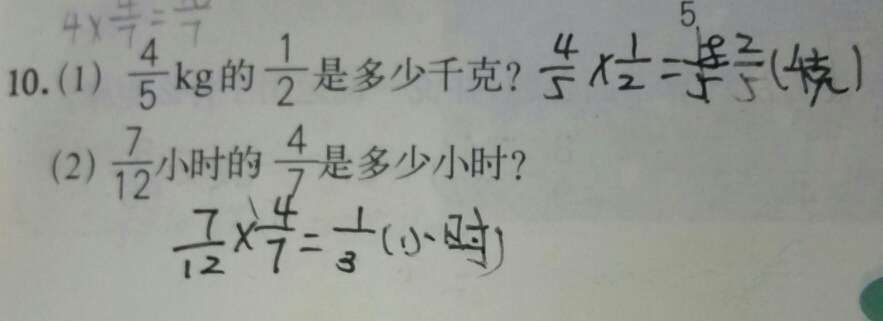 4×4/7=16/7
10.(1) 4/5 kg的 1/2 是多少千克? 4/5×1/2=2/5(千克)
(2) 7/12 小时的 4/7 是多少小时?
7/12×4/7=1/3(小时)